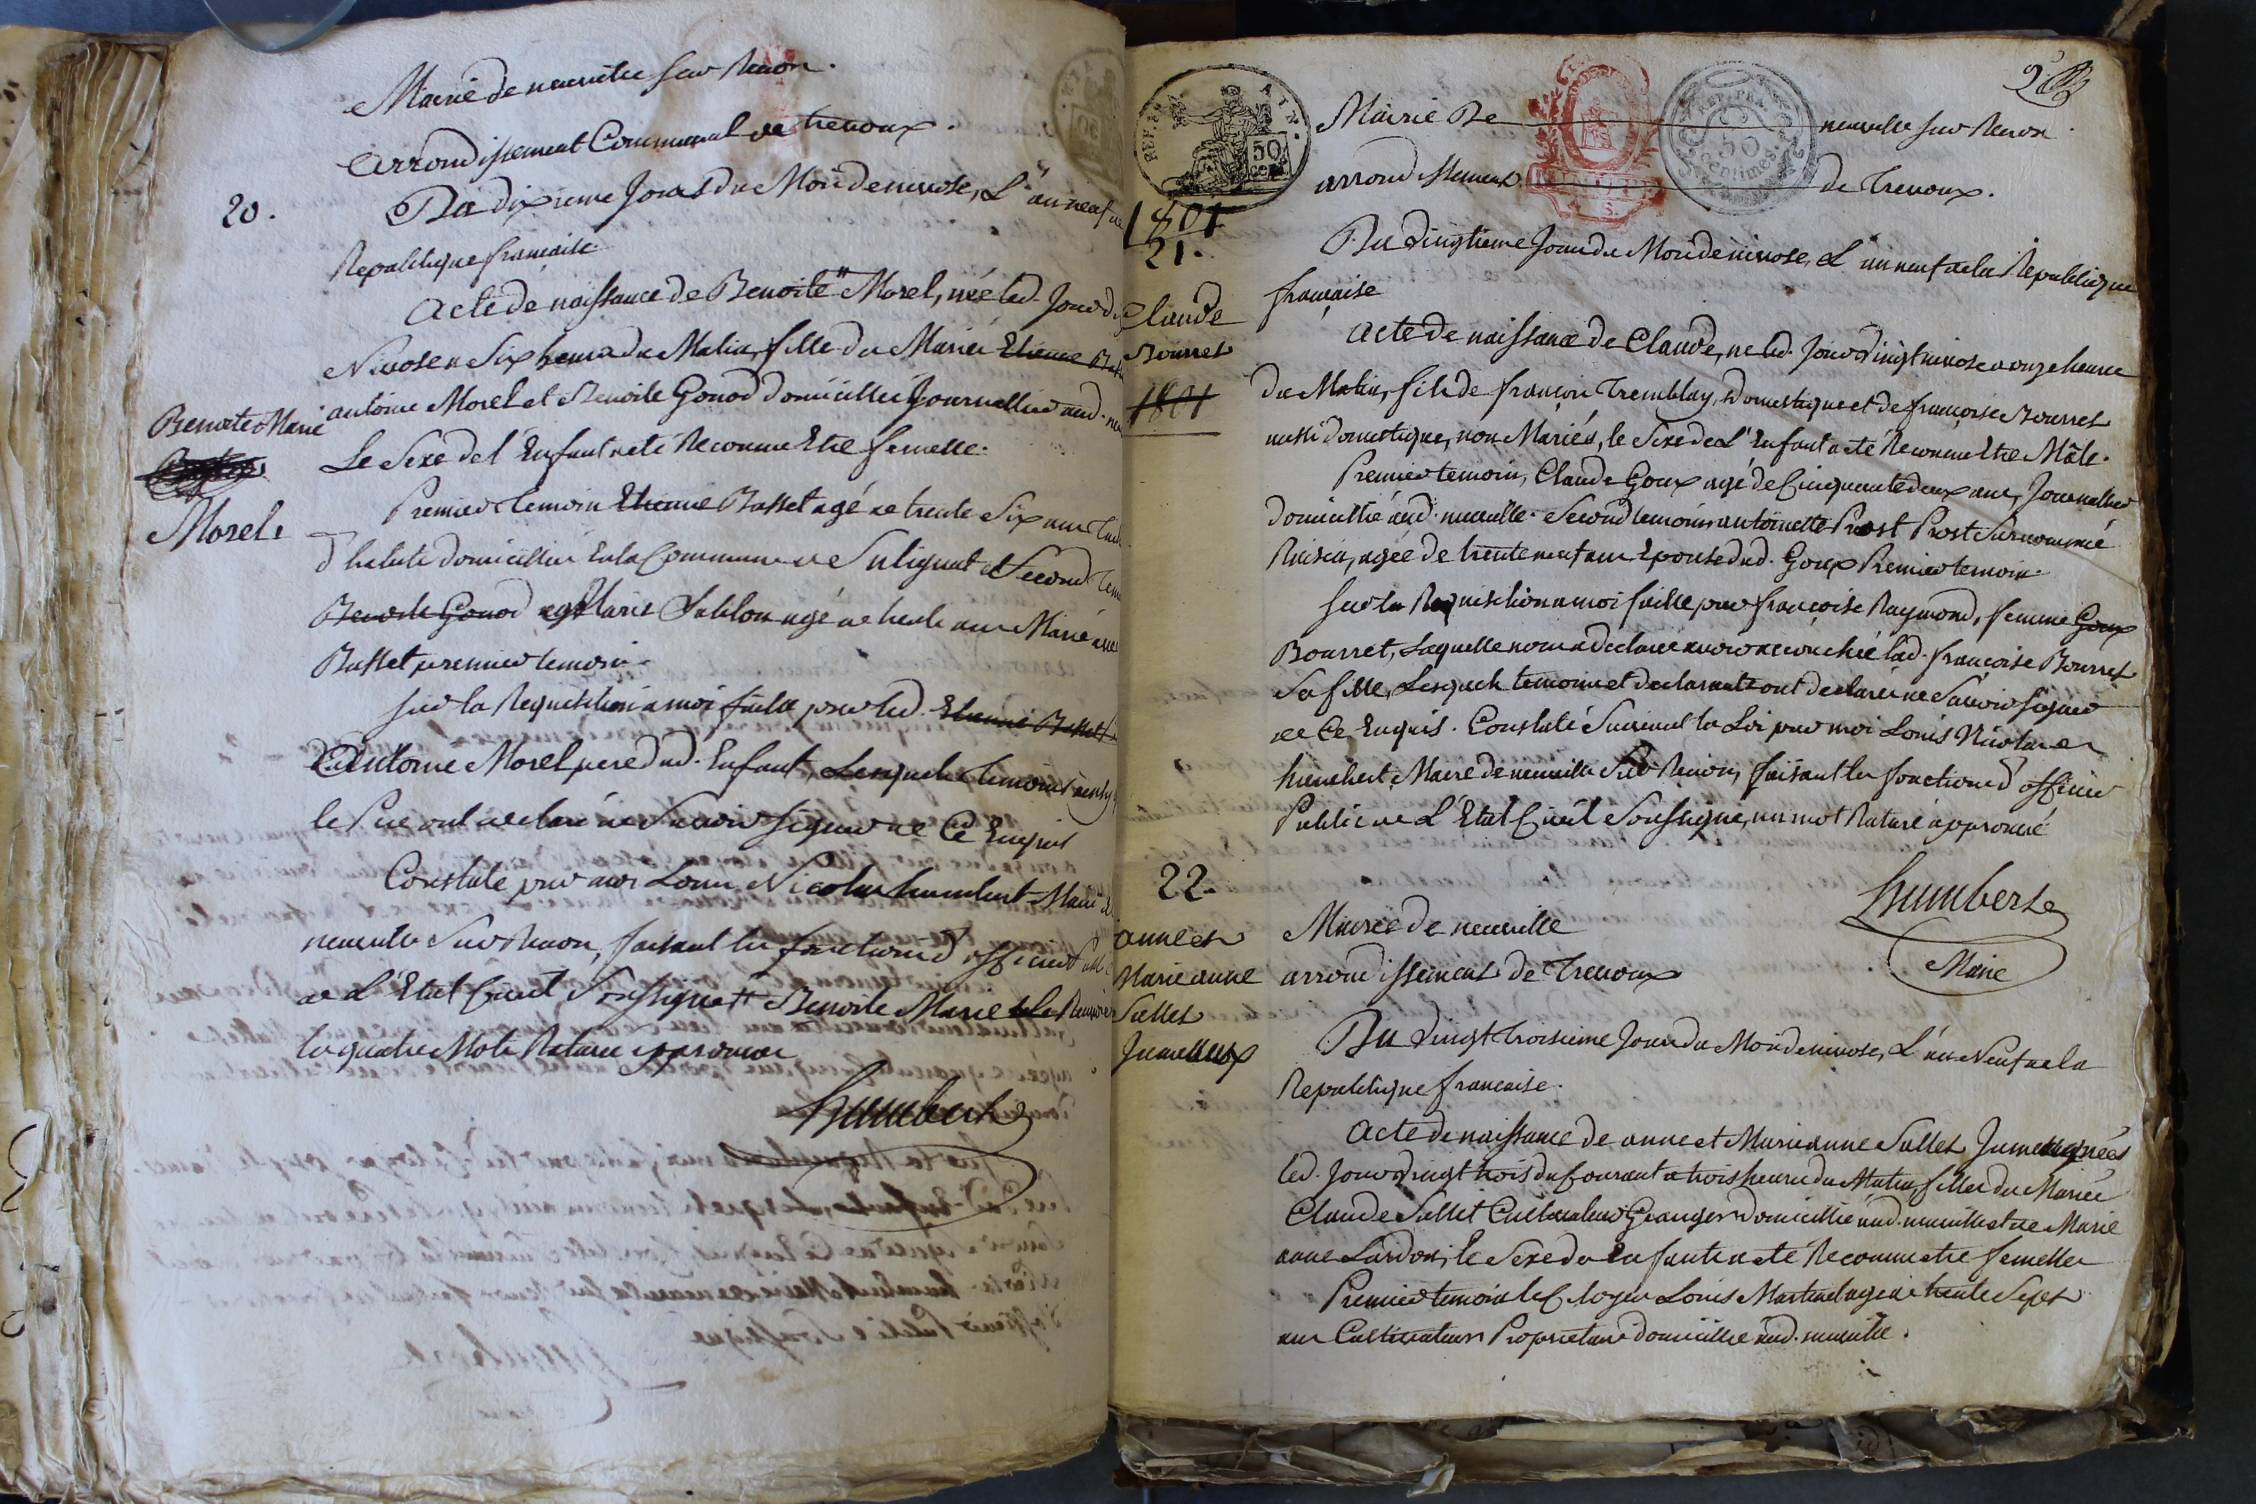 Mairie de neuville sur Renon.
arrondissement Communal de trevoux.
20.
Du dixieme Jour du Mois de nivose, L'an neuf
Republique française.
acte de naissance de Benoite Morel, née led. Jour
Nivose a Six heures du Matin, fille du Mariés Etienne
Benoite Marie
antoine Morel et Benoite Gonod domiciliés Journalliers aud.
Le Sexe de l'Enfant a été Reconnu Etre femelle.
Premier temoin Etienne Basset agé de trente Six ans
Morel
d'habits domicillié En la Commune de Sulignat et Second
Benoite Gonod Marie Sablon agé de trente ans Marié
Basset premier temoin.
sur la Requisition a moi faitte par led. Etienne Basset
antoine Morel pere dud. Enfant, Lesquels temoins
le Pere ont declaré ne Savoir signer de Ce Enquis
Constaté par moi Louis Nicolas humbert Maire
neuville Sur Renon, faisant les fonctions d'officier
de L'Etat Civil Soussigné Benoite Marie
les quatre Mots Raturé approuvé
humbert
REP. FRA.
50
cen.
REP. FRA.
50
centimes.
Mairie De neuville sur Renon.
arrondissement de Trevoux.
1801
21.
Du vingtieme Jour du Mois de nivose, L'an neuf de la Republique
française
Claude
Bourret
1801
acte de naissance de Claude, né led. Jour vingt nivose a onze heures
du Matin, fils de françois Tremblay, domestique et de françoise Bourret
aussi domestique, non Mariés, le Sexe de L'Enfant a été Reconnu Etre Mâle.
Premier temoin, Claude Goux agé de Cinquante deux ans, Journallier
domicillié aud. neuville. Second temoin antoinette Prost Prost Surnommé
agée de trente neuf ans Epouse dud. Goux Premier temoin.
sur la Requisition a moi faitte par françoise Raymond, femme Goux
Bourret, Laquelle nous a declaré avoir accouchée lad. françoise Bourret
Sa fille, Lesquels temoins et declarante ont declarés ne Savoir signer
de Ce Enquis. Constaté Suivant la Loi par moi Louis Nicolas
humbert, Maire de neuville Sur Renon, faisant les fonctions d'officier
Public de L'Etat Civil Soussigné, un mot Raturé approuvé
humbert
Maire
22.
anne et
Marie anne
Sallet
Jumelles
Mairie de neuville
arrondissement de Trevoux
Du vingt troisieme Jour du Mois de nivose, L'an Neuf de la
Republique française.
acte de naissance de anne et Marie anne Sallet Jumelles nées
led. Jour vingt trois du Courant a trois heures du Matin filles du Mariés
Claude Sallet Cultivateur Granger domicillié aud. neuville et de Marie
anne Lardon, le Sexe des Enfants a été Reconnu etre femelles
Premier temoin le Citoyen Louis Martinet agé de trente Sept
ans Cultivateur Proprietaire domicillié aud. neuville.